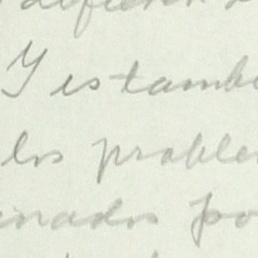 Y estamb
los proble
inados po